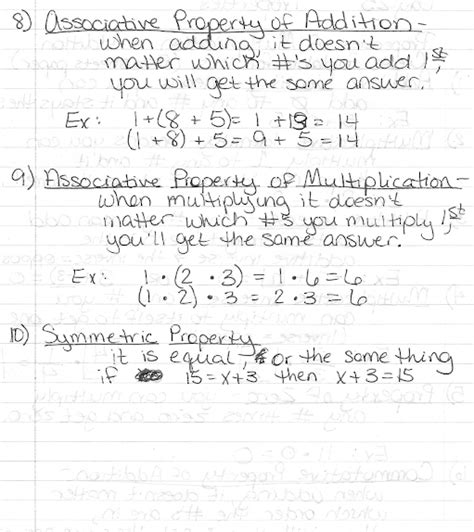 8) Associative Property of Addition -
when adding it doesn't
matter which #'s you add 1st,
you will get the same answer.
Ex: 1+(8 + 5)= 1 +13 = 14
(1 + 8) + 5 = 9 + 5 = 14
9) Associative Property of Multiplication -
when multiplying it doesn't
matter which #'s you multiply 1st,
you'll get the same answer.
Ex: 1 · (2 · 3) = 1 · 6 = 6
(1 · 2) · 3 = 2 · 3 = 6
10) Symmetric Property
it is equal, or the same thing
if 15 = x+3 then x+3=15